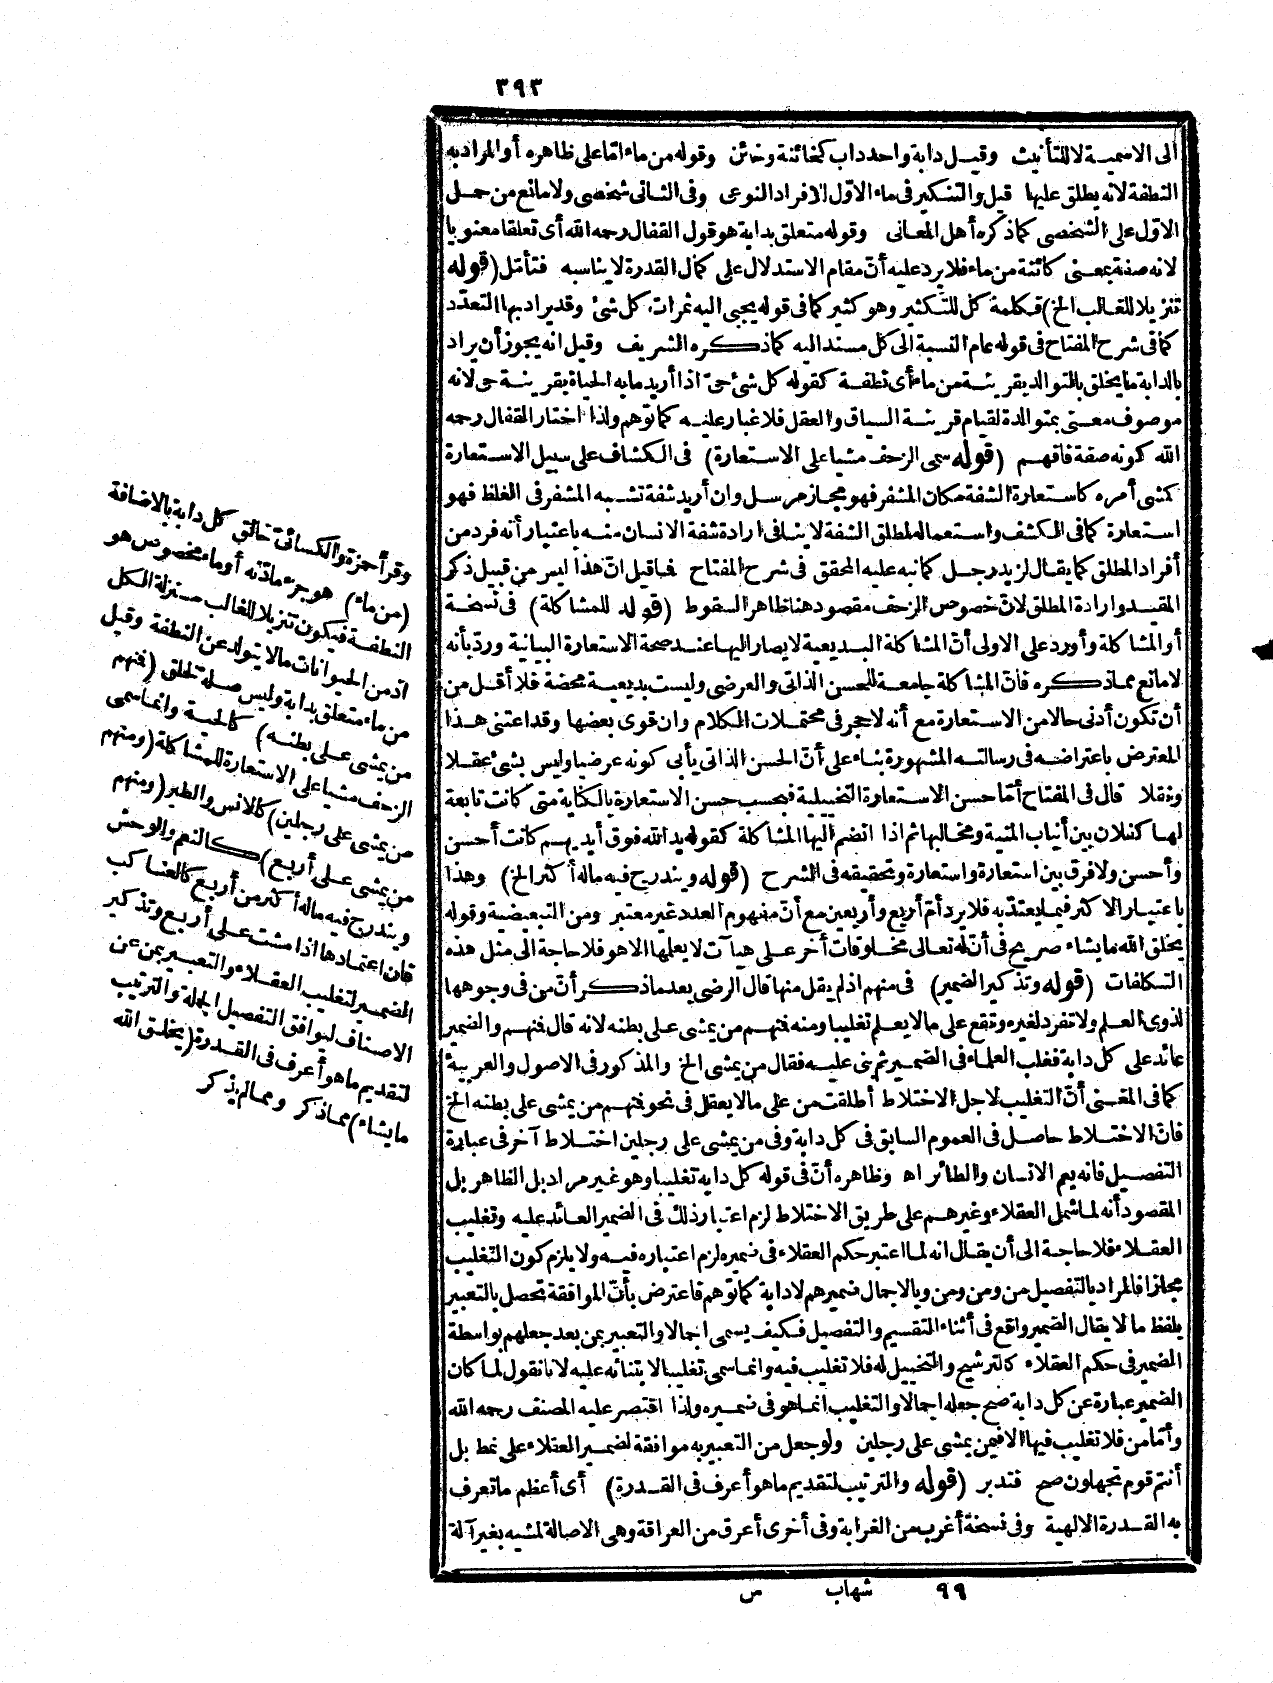 ٣٩٣
الى الاسمية لا للتأنيث وقيل دابة واحد داب كخائنة وخائن وقوله من ماء اما على ظاهره أو المراد به
النطفة لانه يطلق عليها قيل والتنكير فى ماء الاول للافراد النوعى وفى الثانى شخصى ولا مانع من حمل
الاول على الشخصى كما ذكره أهل المعانى وقوله متعلق بدابة هو قول القفال رحمه الله أى تعلقا معنويا
لانه صفة بمعنى كائنة من ماء فلا يرد عليه أنّ مقام الاستدلال على كمال القدرة لا يناسبه فتأمّل (قوله
تنزيلا للغالب الخ) فكلمة كل للتكثير وهو كثير كما فى قوله يجبى اليه ثمرات كل شئ وقد يراد بها التعدّد
كما فى شرح المفتاح فى قوله عام النسبة الى كل مسند اليه كما ذكره الشريف وقيل انه يجوز أن يراد
بالدابة ما يخلق بالتوالد بقرينة من ماء أى نطفة كقوله كل شئ حىّ اذا أريد ما به الحياة بقرينة حى لانه
موصوف معنى بمتوالدة لقيام قرينة السياق والعقل فلا غبار عليه كما توهم ولذا اختار القفال رحمه
الله كونه صفة فافهم (قوله سمى الزحف مشيا على الاستعارة) فى الكشاف على سبيل الاستعارة
كمشى أمره كاستعارة الشفة مكان المشفر فهو مجاز مرسل وان أريد شفة تشبه المشفر فى الغلظ فهو
استعارة كما فى الكشف واستعماله لمطلق الشفة لا ينافى ارادة شفة الانسان منه باعتبار أنه فرد من
أفراد المطلق كما يقال لزيد رجل كما نبه عليه المحقق فى شرح المفتاح فما قيل انّ هذا ليس من قبيل ذكر
المقيد وارادة المطلق لانّ خصوص الزحف مقصود هنا ظاهر السقوط (قوله للمشاكلة) فى نسخة
أو المشاكلة وأورد على الاولى أنّ المشاكلة البديعية لا يصار اليها عند صحة الاستعارة البيانية وردّ بأنه
لا مانع مما ذكره فانّ المشاكلة جامعة للحسن الذاتى والعرضى وليست بديعية محضة فلا أقل من
أن تكون أدنى حالا من الاستعارة مع أنه لا حجر فى محتملات الكلام وان قوى بعضها وقد اعتنى هذا
المعترض باعتراضه فى رسالته المشهورة بناء على أنّ الحسن الذاتى يأبى كونه عرضيا وليس بشئ عقلا
ونقلا قال فى المفتاح أمّا حسن الاستعارة التخييلية فبحسب حسن الاستعارة بالكناية متى كانت تابعة
لها كفلان بين أنياب المنية ومخالبها ثم اذا انضم اليها المشاكلة كقوله يد الله فوق أيديهم كانت أحسن
وأحسن ولا فرق بين استعارة واستعارة وتحقيقه فى الشرح (قوله ويندرج فيه ماله أكثر الخ) وهذا
باعتبار الاكثر فيما يعتدّ به فلا يرد أمّ أربع وأربعين مع أنّ مفهوم العدد غير معتبر ومن التبعيضية وقوله
يخلق الله ما يشاء صريح فى أنّ له تعالى مخلوقات أخر على هيآت لا يعلمها الا هو فلا حاجة الى مثل هذه
التكلفات (قوله وتذكير الضمير) فى منهم اذ لم يقل منها قال الرضى بعد ما ذكر أنّ من فى وجوهها
لذوى العلم ولا تفرد لغيره وتقع على ما لا يعلم تغليبا ومنه فمنهم من يمشى على بطنه لانه قال فمنهم والضمير
عائد على كل دابة فغلب العلماء فى الضمير ثم بنى عليه فقال من يمشى الخ والمذكور فى الاصول والعربية
كما فى المغنى أنّ التغليب لاجل الاختلاط أطلقت من على ما لا يعقل فى نحو فمنهم من يمشى على بطنه الخ
فانّ الاختلاط حاصل فى العموم السابق فى كل دابة وفى من يمشى على رجلين اختلاط آخر فى عبارة
التفصيل فانه يعم الانسان والطائر اه وظاهره أنّ فى قوله كل دابة تغليبا وهو غير مراد بل الظاهر بل
المقصود أنه لما شمل العقلاء وغيرهم على طريق الاختلاط لزم اعتبار ذلك فى الضمير العائد عليه وتغليب
العقلاء فلا حاجة الى أن يقال انه لما اعتبر حكم العقلاء فى ضميره لزم اعتباره فيه ولا يلزم كون التغليب
مجازا فالمراد بالتفصيل من ومن ومن وبالاجمال ضميرهم لا دابة كما توهم فاعترض بأنّ الموافقة تحصل بالتعبير
بلفظ ما لا يقال الضمير واقع فى أثناء التقسيم والتفصيل فكيف يسمى اجمالا والتعبير بمن بعد جعلهم بواسطة
الضمير فى حكم العقلاء كالترشيح والتخييل له فلا تغليب فيه وانما سمى تغليبا لابتنائه عليه لانا نقول لما كان
الضمير عبارة عن كل دابة صح جعله اجمالا والتغليب انما هو فى ضميره ولذا اقتصر عليه المصنف رحمه الله
وأمّا من فلا تغليب فيها الا فيمن يمشى على رجلين ولو جعل من التعبير به موافقة لضمير العقلاء على نمط بل
أنتم قوم تجهلون صح فتدبر (قوله والترتيب لتقديم ما هو أعرف فى القدرة) أى أعظم ما تعرف
به القدرة الالهية وفى نسخة أغرب من الغرابة وفى أخرى أعرق من العراقة وهى الاصالة لمشيه بغير آلة
وقرأ حمزة والكسائىّ خالق كل دابة بالاضافة
(من ماء) هو جزء مادّته أو ماء مخصوص هو
النطفة فيكون تنزيلا للغالب منزلة الكل
اذ من الحيوانات ما لا يتولد عن النطفة وقيل
من ماء متعلق بدابة وليس صلة لخلق (فمنهم
من يمشى على بطنه) كالحية وانما سمى
الزحف مشيا على الاستعارة للمشاكلة (ومنهم
من يمشى على رجلين) كالانس والطير (ومنهم
من يمشى على أربع) كالنعم والوحش
ويندرج فيه ماله أكثر من أربع كالعناكب
فان اعتمادها اذا مشت على أربع وتذكير
الضمير لتغليب العقلاء والتعبير بمن عن
الاصناف ليوافق التفصيل الجملة والترتيب
لتقديم ما هو أعرف فى القدرة (يخلق الله
ما يشاء) مما ذكر ومما لم يذكر
٩٩ شهاب س